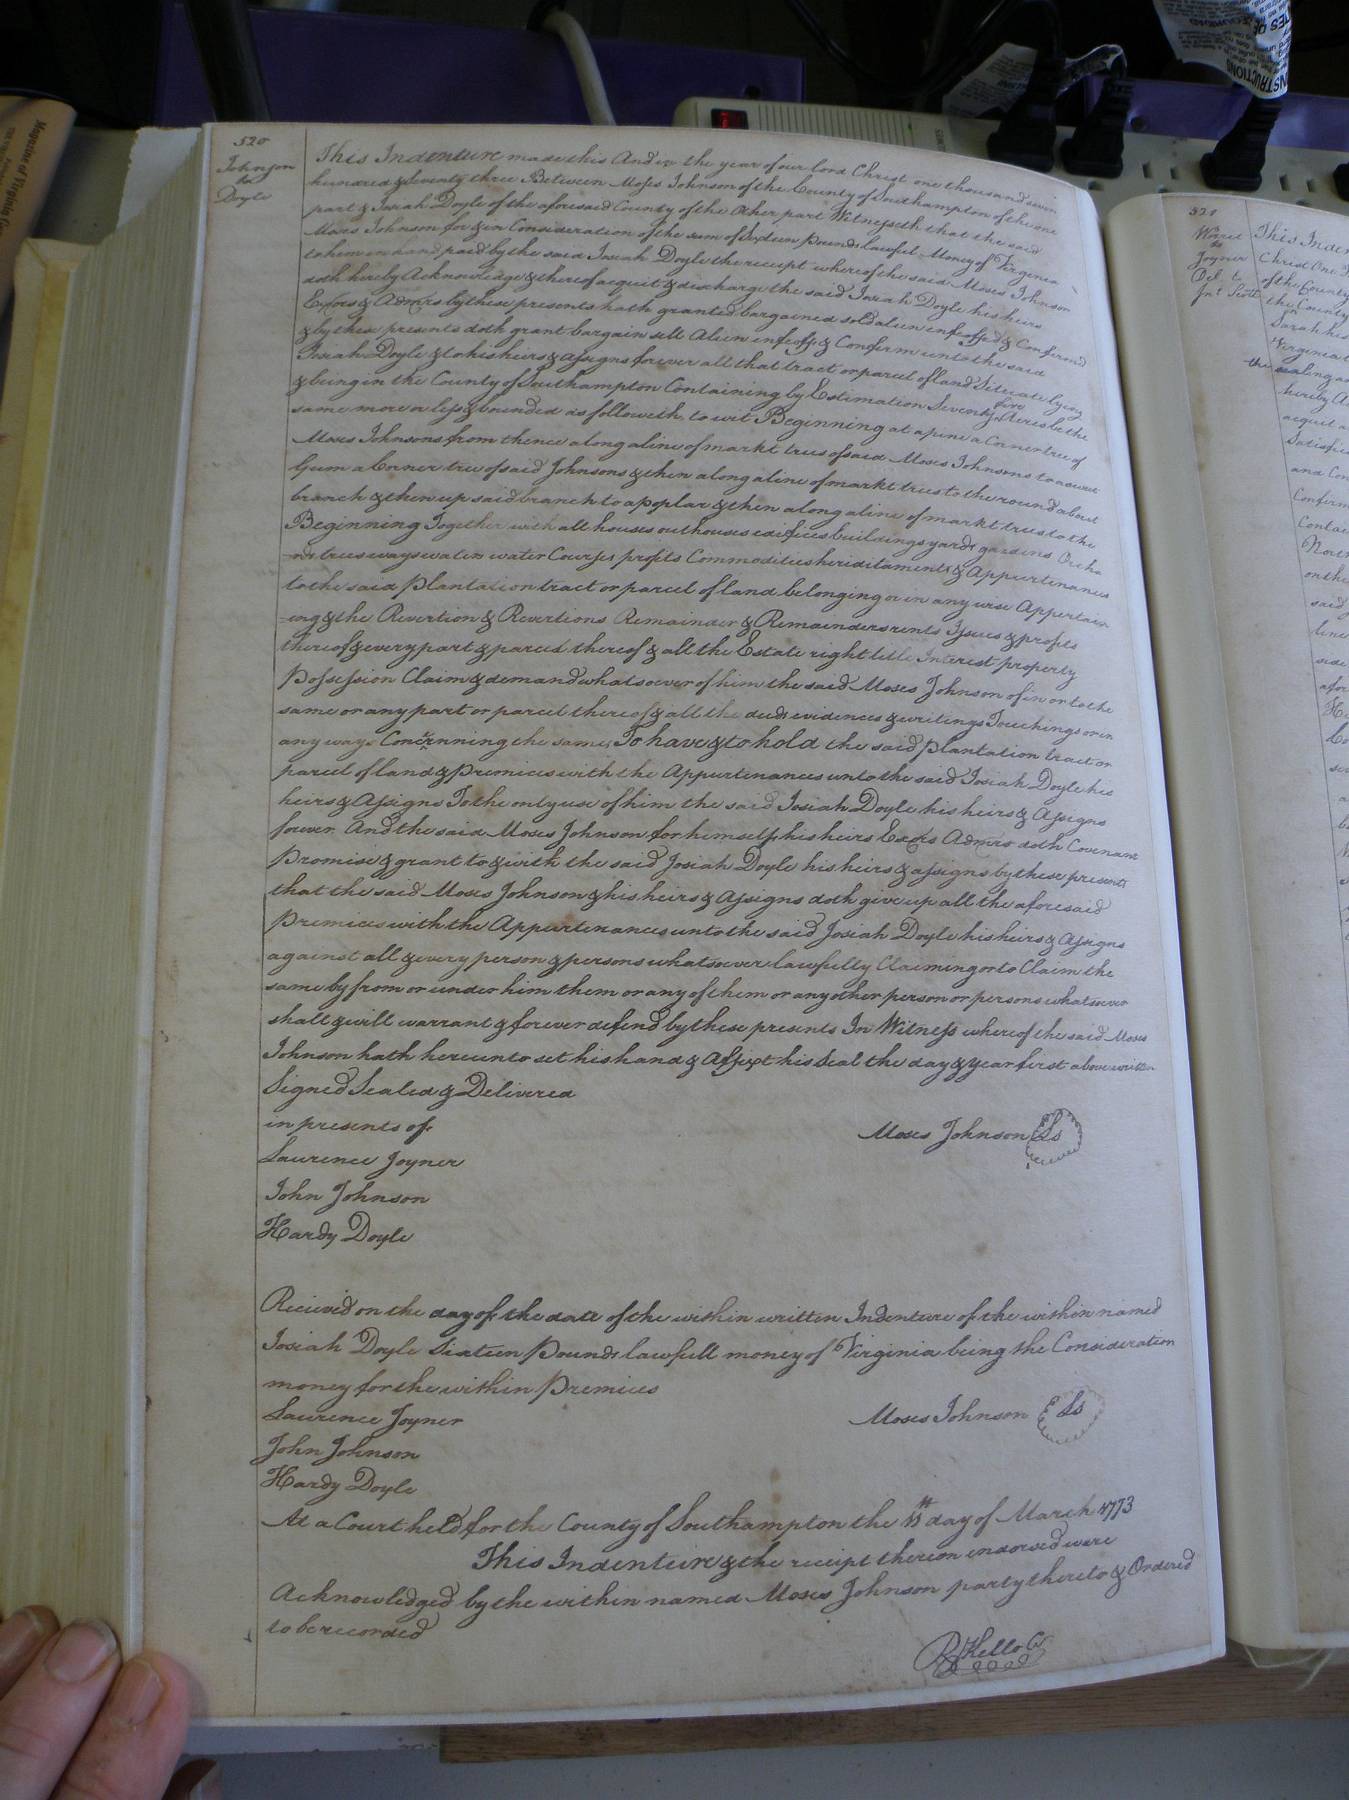 520
Johnson
to
Doyle
This Indenture made this And in the year of our Lord Christ one thousand seven
hundred & Seventy three Between Moses Johnson of the County of Southampton of the one
part & Josiah Doyle of the aforesaid County of the Other part Witnesseth that the said
Moses Johnson for & in Consideration of the sum of Sixteen Pounds lawful Money of Virginia
to him in hand paid by the said Josiah Doyle the receipt whereof the said Moses Johnson
doth hereby Acknowledge & thereof acquit & discharge the said Josiah Doyle his heirs
Exors & Admrs by these presents hath granted bargained sold alien enfeoffed & Confirmd
& by these presents doth grant bargain sell Alien enfeoff & Confirm unto the said
Josiah Doyle & to his heirs & assigns forever all that tract or parcel of land Situate lying
& being in the County of Southampton Containing by Estimation Seventy five Acres be the
same more or less & bounded as followeth to wit Beginning at a pine a Corner tree of
Moses Johnsons from thence along a line of markt trees of said Moses Johnsons to a sweet
Gum a Corner tree of said Johnsons & then along a line of markt trees to the round about
branch & then up said branch to a poplar & then along a line of markt trees to the
Beginning Together with all houses outhouses edifices buildings yards gardins Orcha
-rds trees ways waters water Courses profits Commodities heriditaments & Appurtenances
to the said Plantation tract or parcel of land belonging or in any wise Appertain
-ing & the Revertion & Revertions Remainder & Remainders rents Issues & profits
thereof & every part & parcel thereof & all the Estate right title Interest property
Possession Claim & demand whatsoever of him the said Moses Johnson of in or to the
same or any part or parcel thereof & all the deeds evidences & writings Touchings or in
any ways Concernning the same, To have & to hold the said plantation tract or
parcel of land & Premices with the Appurtenances unto the said Josiah Doyle his
heirs & Assigns To the only use of him the said Josiah Doyle his heirs & Assigns
forever And the said Moses Johnson for himself his heirs Exors Admrs doth Covenant
Promise & grant to & with the said Josiah Doyle his heirs & assigns by these presents
that the said Moses Johnson & his heirs & Assigns doth give up all the aforesaid
Premices with the Appurtenances unto the said Josiah Doyle his heirs & Assigns
against all & every person & persons whatsoever lawfully Claiming or to Claim the
same by from or under him them or any of them or any other person or persons whatsoever
shall & will warrant & forever defend by these presents In Witness whereof the said Moses
Johnson hath hereunto set his hand & Affixt his Seal the day & year first above written
Signed Sealed & Delivered
in presents of
Moses Johnson Ls
Laurence Joyner
John Johnson
Hardy Doyle
Recieved on the day of the date of the within written Indenture of the within named
Josiah Doyle Sixteen Pounds lawfull money of Virginia being the Consideration
money for the within Premices
Laurence Joyner
Moses Johnson Ls
John Johnson
Hardy Doyle
At a Court held for the County of Southampton the 11th day of March 1773
This Indenture & the receipt thereon endorsed were
Acknowledged by the within named Moses Johnson party thereto & Ordered
to be recorded
R Kello C
521
to
Joyner
This Inden
Christ One
of the County
the County
Sarah his
Virginia
the sealing a
hereby A
acquit a
Satisfie
and Con
Confirm
Contai
North
on the
said
line
side
Magazine of Virginia
INSTRUCTIONS